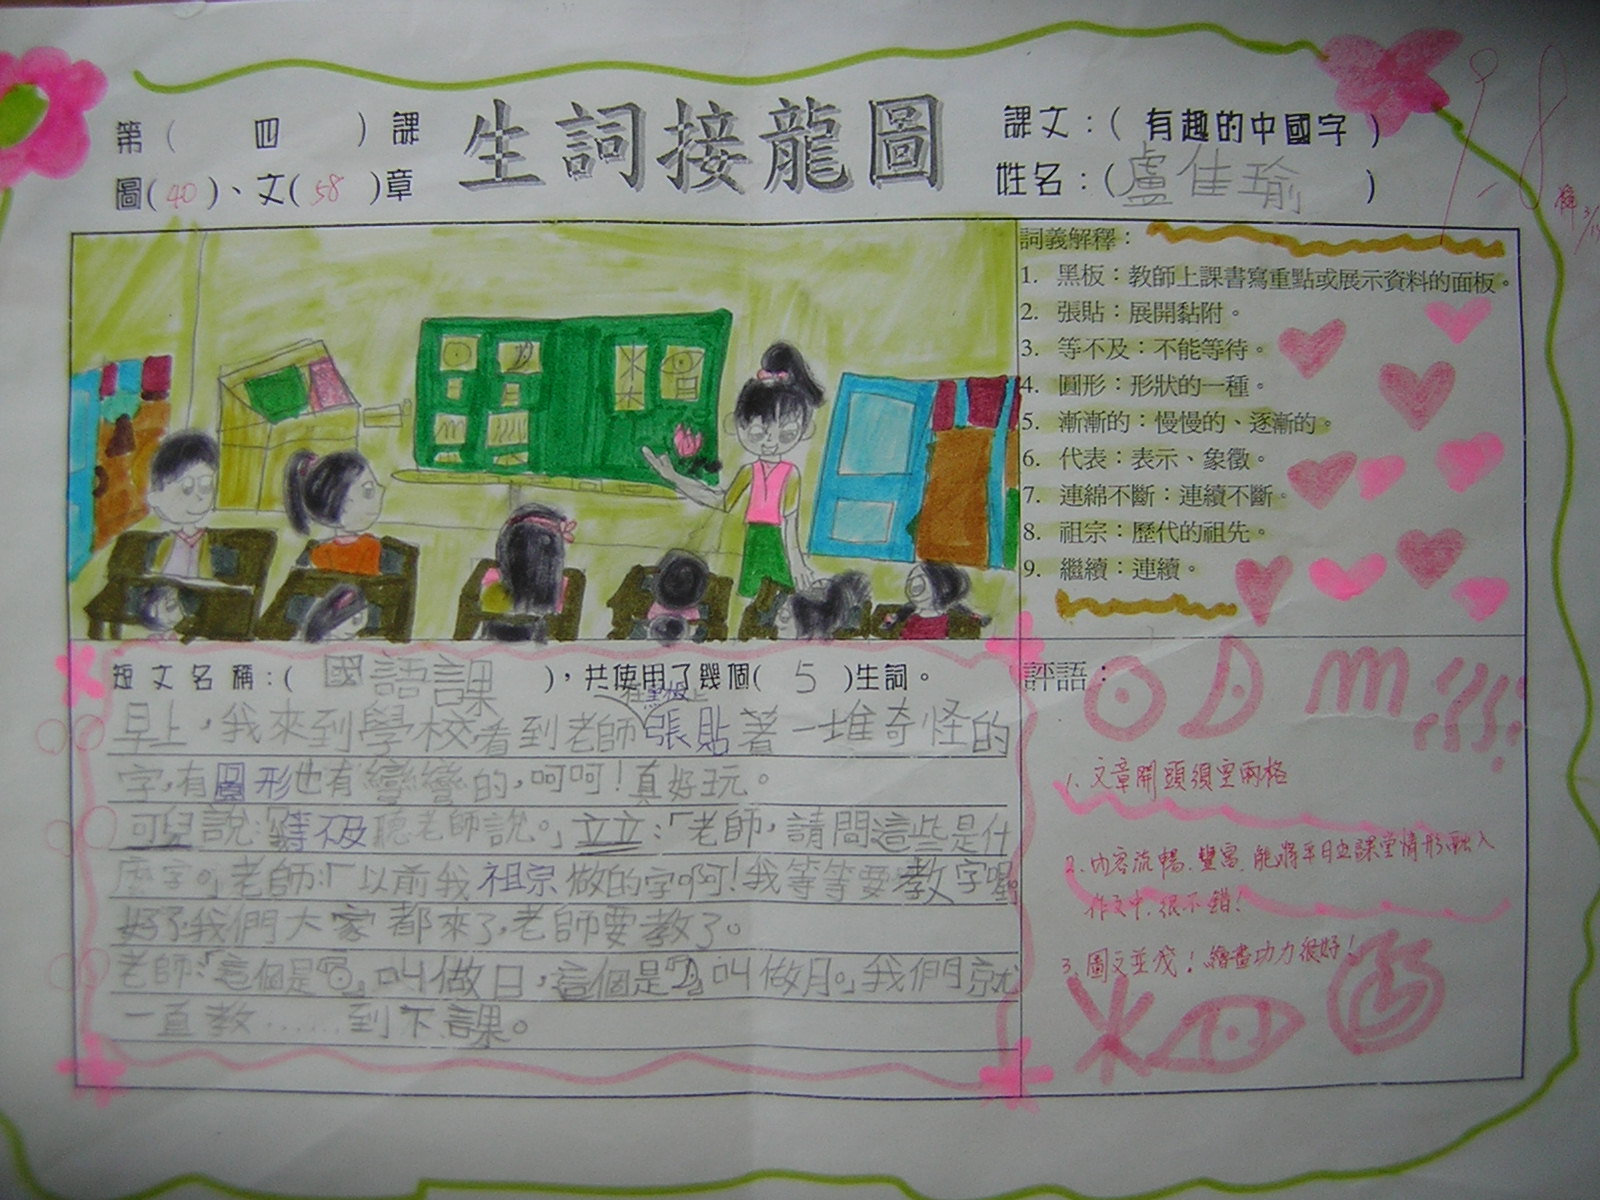 第（ 四 ）課
生詞接龍圖
課文：（ 有趣的中國字 ）
圖(40)、文(58)章
姓名：（盧佳瑜 ）
98
詞義解釋：
1. 黑板：教師上課書寫重點或展示資料的面板。
2. 張貼：展開黏附。
3. 等不及：不能等待。
4. 圓形：形狀的一種。
5. 漸漸的：慢慢的、逐漸的。
6. 代表：表示、象徵。
7. 連綿不斷：連續不斷。
8. 祖宗：歷代的祖先。
9. 繼續：連續。
短文名稱：（ 國語課 ），共使用了幾個（ 5 ）生詞。
在黑板上
早上，我來到學校，看到老師張貼著一堆奇怪的
字，有圓形也有彎彎的，呵呵！真好玩。
可兒說：「等不及聽老師說。」立立：「老師，請問這些是什
麼字。」老師：「以前我祖宗做的字啊！我等等要教字喔。
好了，我們大家都來了，老師要教了。
老師：「這個是「⊙」叫做日，這個是「」叫做月。」我們就
一直教……到下課。
評語：
1. 文章開頭須空兩格
2. 內容流暢、豐富，能將平日上課堂情形融入
作文中，很不錯！
3. 圖文並茂！繪畫功力很好！